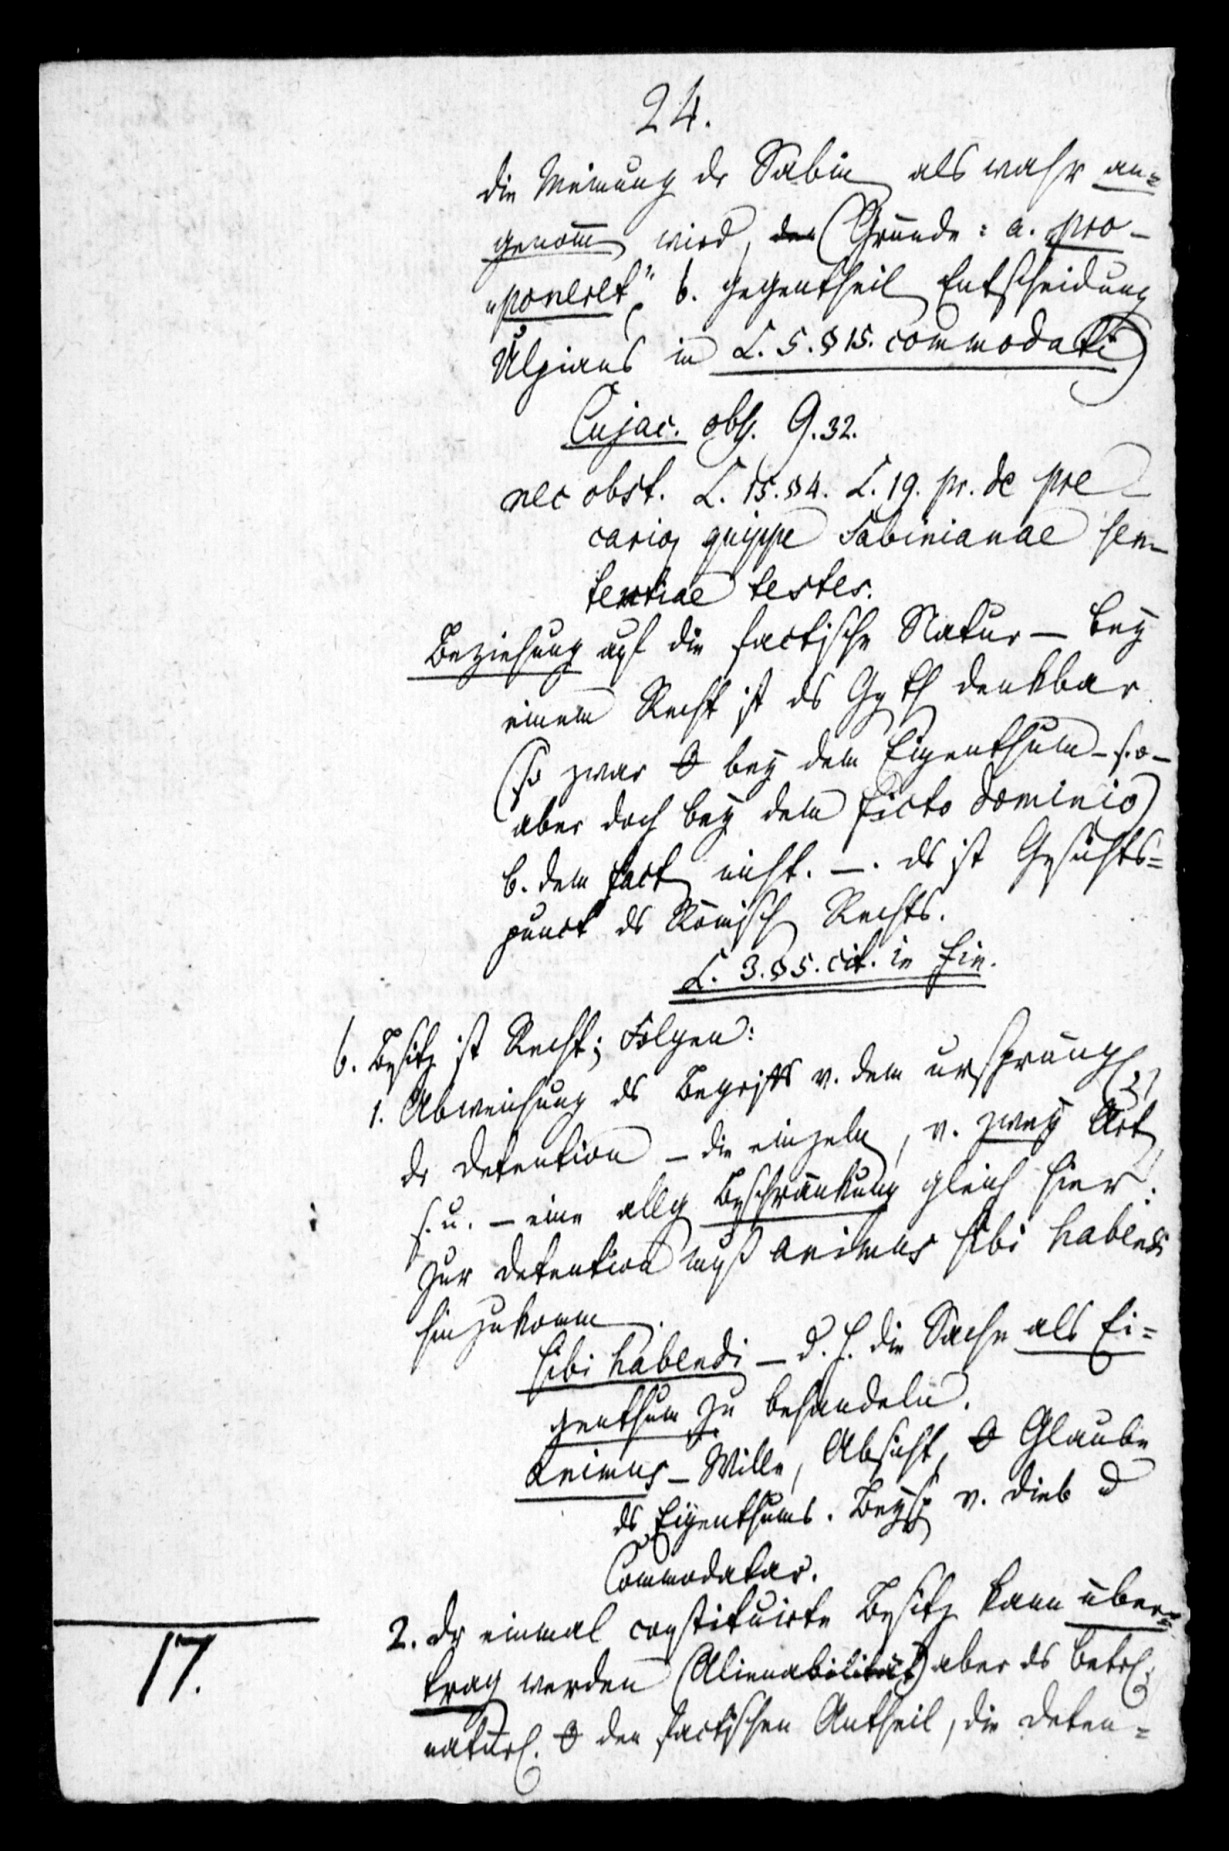 24.
die Meinung dr Sabin als wahr an=
genom̄ wird, den (Gründe: a. pro-
"poneret", b. gegentheil Entscheidung
Ulpians in L. 5. § 15. commodati)
Cujac. obs. 9.32.
nec obst. L. 15. § 4. L. 19. pr. de pre
cario, quippe Sabinianae sen-
tentiae testes.
Beziehung auf die factische Natur — bey
einem Recht ist ds denkbar
(so zwar 0 bey dem Eigenthum - s. o -
aber doch bey dem ficto dominio)
b. dem fact nicht. — . ds ist Gesichts=
punct ds Römisch Rechts.
L. 3. § 5. cit. in fin.
b. Besitz ist Recht; Folgen:
1. Abweichung ds Begriffs v. dem ursprüngl
dr Detention - die einzeln, v. zwey Art
s. u. - eine allg Beschränkung gleich hier:
zur Detention muß animus sibi habendi
hinzukomm.
sibi habendi - d. h. die Sache als Ei=
genthum zu behandeln.
Animus - Wille, Absicht, 0 Glaube
ds Eigenthums. Beysp v. Dieb u
Commodatar.
2. Dr einmal constituirte Besitz kann über=
trag werden (Alienabilität) aber ds betr.
17.
natürl. 0 den factischen Antheil, die Deten=